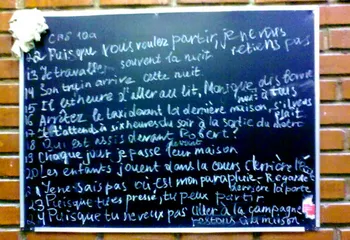 CMS 10a
22 Puisque vous voulez partir, je ne vous retiens pas
13 Je travaille souvent la nuit
14 Son train arrive cette nuit
15 Il est heure d'aller au lit, Monique dis bonne nuit à tous
16 Arrêtez le taxi devant la dernière maison, s'il vous plait
17 Il t'attend à six heures du soir à la sortie du métro
18 Qui est assis devant Robert?
19 Chaque jour je passe devant leur maison
20 Les enfants jouent dans la cours derrière
Je ne sais pas où est mon parapluie. Regarde derrière la porte
23 Puisque tu es pressé, tu peux partir
24 Puisque tu ne veux pas aller à la campagne restons à la maison